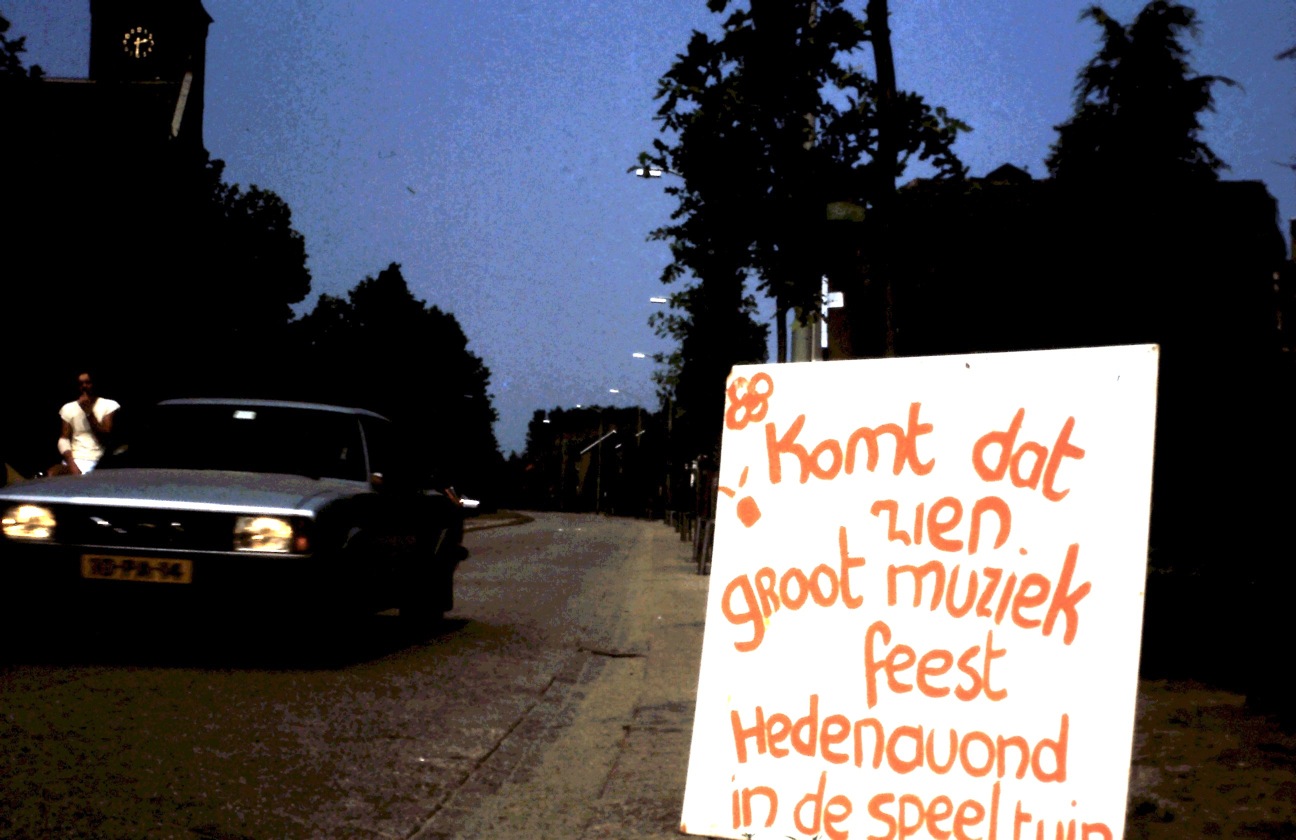 Komt dat
zien
gRoot muziek
feest
Hedenavond
in de speeltuin